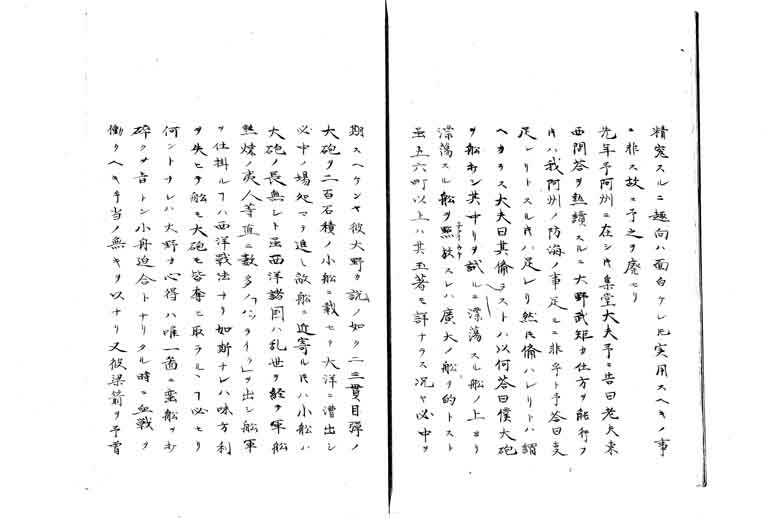 精究スルニ趣向ハ面白ケレ𪜈実用スヘキノ事
ニ非ス故ニ予之ヲ廃セリ
先年予阿州ニ在シ𪜈集堂大夫予ニ告曰老夫東
西問答ヲ熟讀スルニ大野武矩カ仕方ヲ能行フ
𪜈ハ我阿州ノ防海ノ事足ルニ非乎ト予答曰支
足レリトスル𪜈ハ足レリ然𪜈備ハレリトハ謂
ヘカラス大夫曰其備ラストハ以何答曰僕大砲
ヲ船ニ其中リヲ試ルニ漂蕩スル船ノ上ヨリ
漂蕩スル船ヲ點放スレハ廣大ノ船ヲ的トスト
虽五六町以上ハ其玉著モ詳ナラス况ヤ必中ヲ
期スヘケンヤ彼大野カ説ノ如ク二三貫目弾ノ
大砲ヲ二百石積ノ小船ニ載セテ大洋ニ漕出シ
必中ノ場処マテ進ミ敵船ニ近寄ル𪜈ハ小船ハ
大砲ノ長無シト虽西洋諸国ハ乱世ヲ経テ軍船
熟煉ノ夷人等直ニ數多ノ「バッテイラ」ヲ出シ船軍
ヲ仕掛ルヿハ西洋戦法ナリ如斯ナレハ味方利
ヲ失ヒテ船モ大砲モ皆奪ヒ取ラルヽヿ必セリ
何ントナレハ大野カ心得ハ唯一箇ニ蛮船ヲ打
碎クヲ旨トシ小舟迫合トナリタル時ニ血戦ヲ
働クヘキ手当ノ無キヲ以ナリ又彼梁箭ヲ予嘗